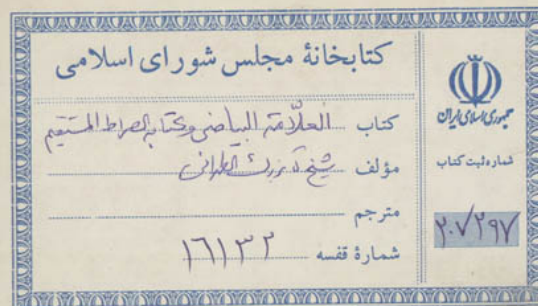 کتابخانهٔ مجلس شورای اسلامی
کتاب العلّامة البیاضی وکتابه الصراط المستقیم
مؤلف شیخ آقا بزرك الطهرانی
مترجم
شمارهٔ قفسه ۱۶۱۳۲
جمهوری اسلامی ایران
شماره ثبت کتاب
۲۰۷۲۹۷